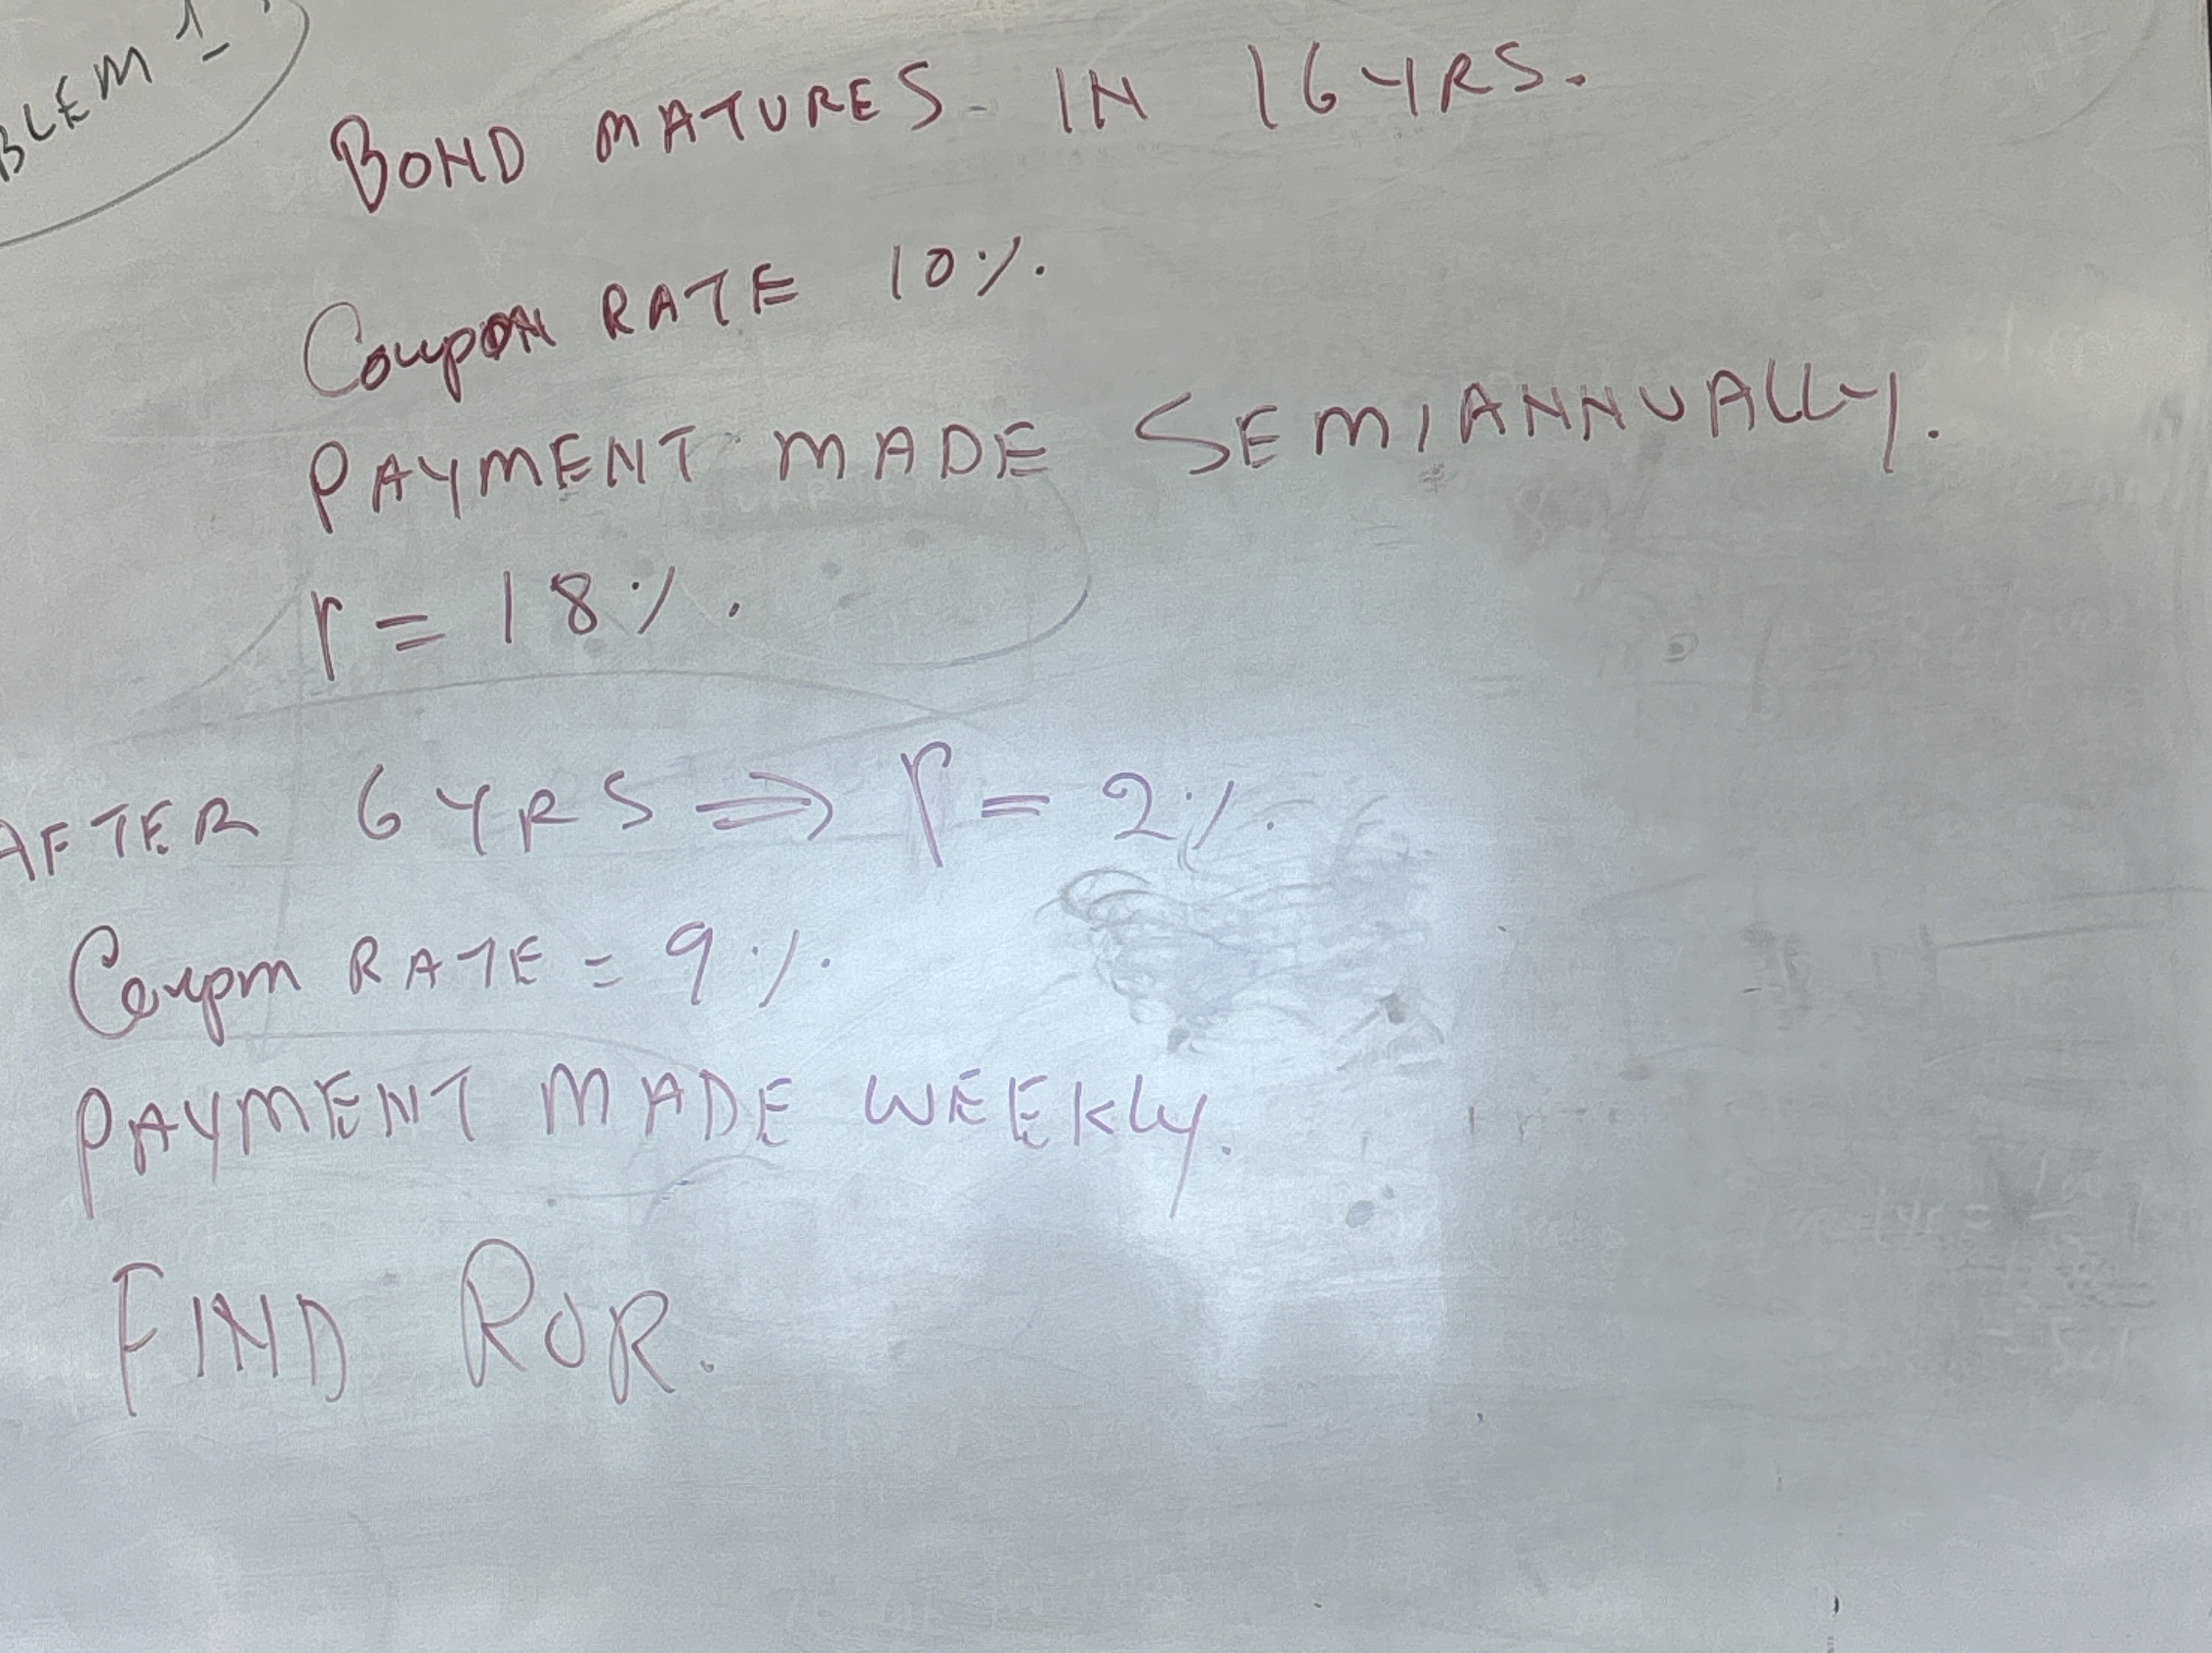 BLEM 1
BOND MATURES IN 16 YRS.
COUPON RATE 10%.
PAYMENT MADE SEMIANNUALLY.
r = 18%.
AFTER 6 YRS ⇒ r = 2%.
Coupon RATE = 9%.
PAYMENT MADE WEEKLY.
FIND ROR.